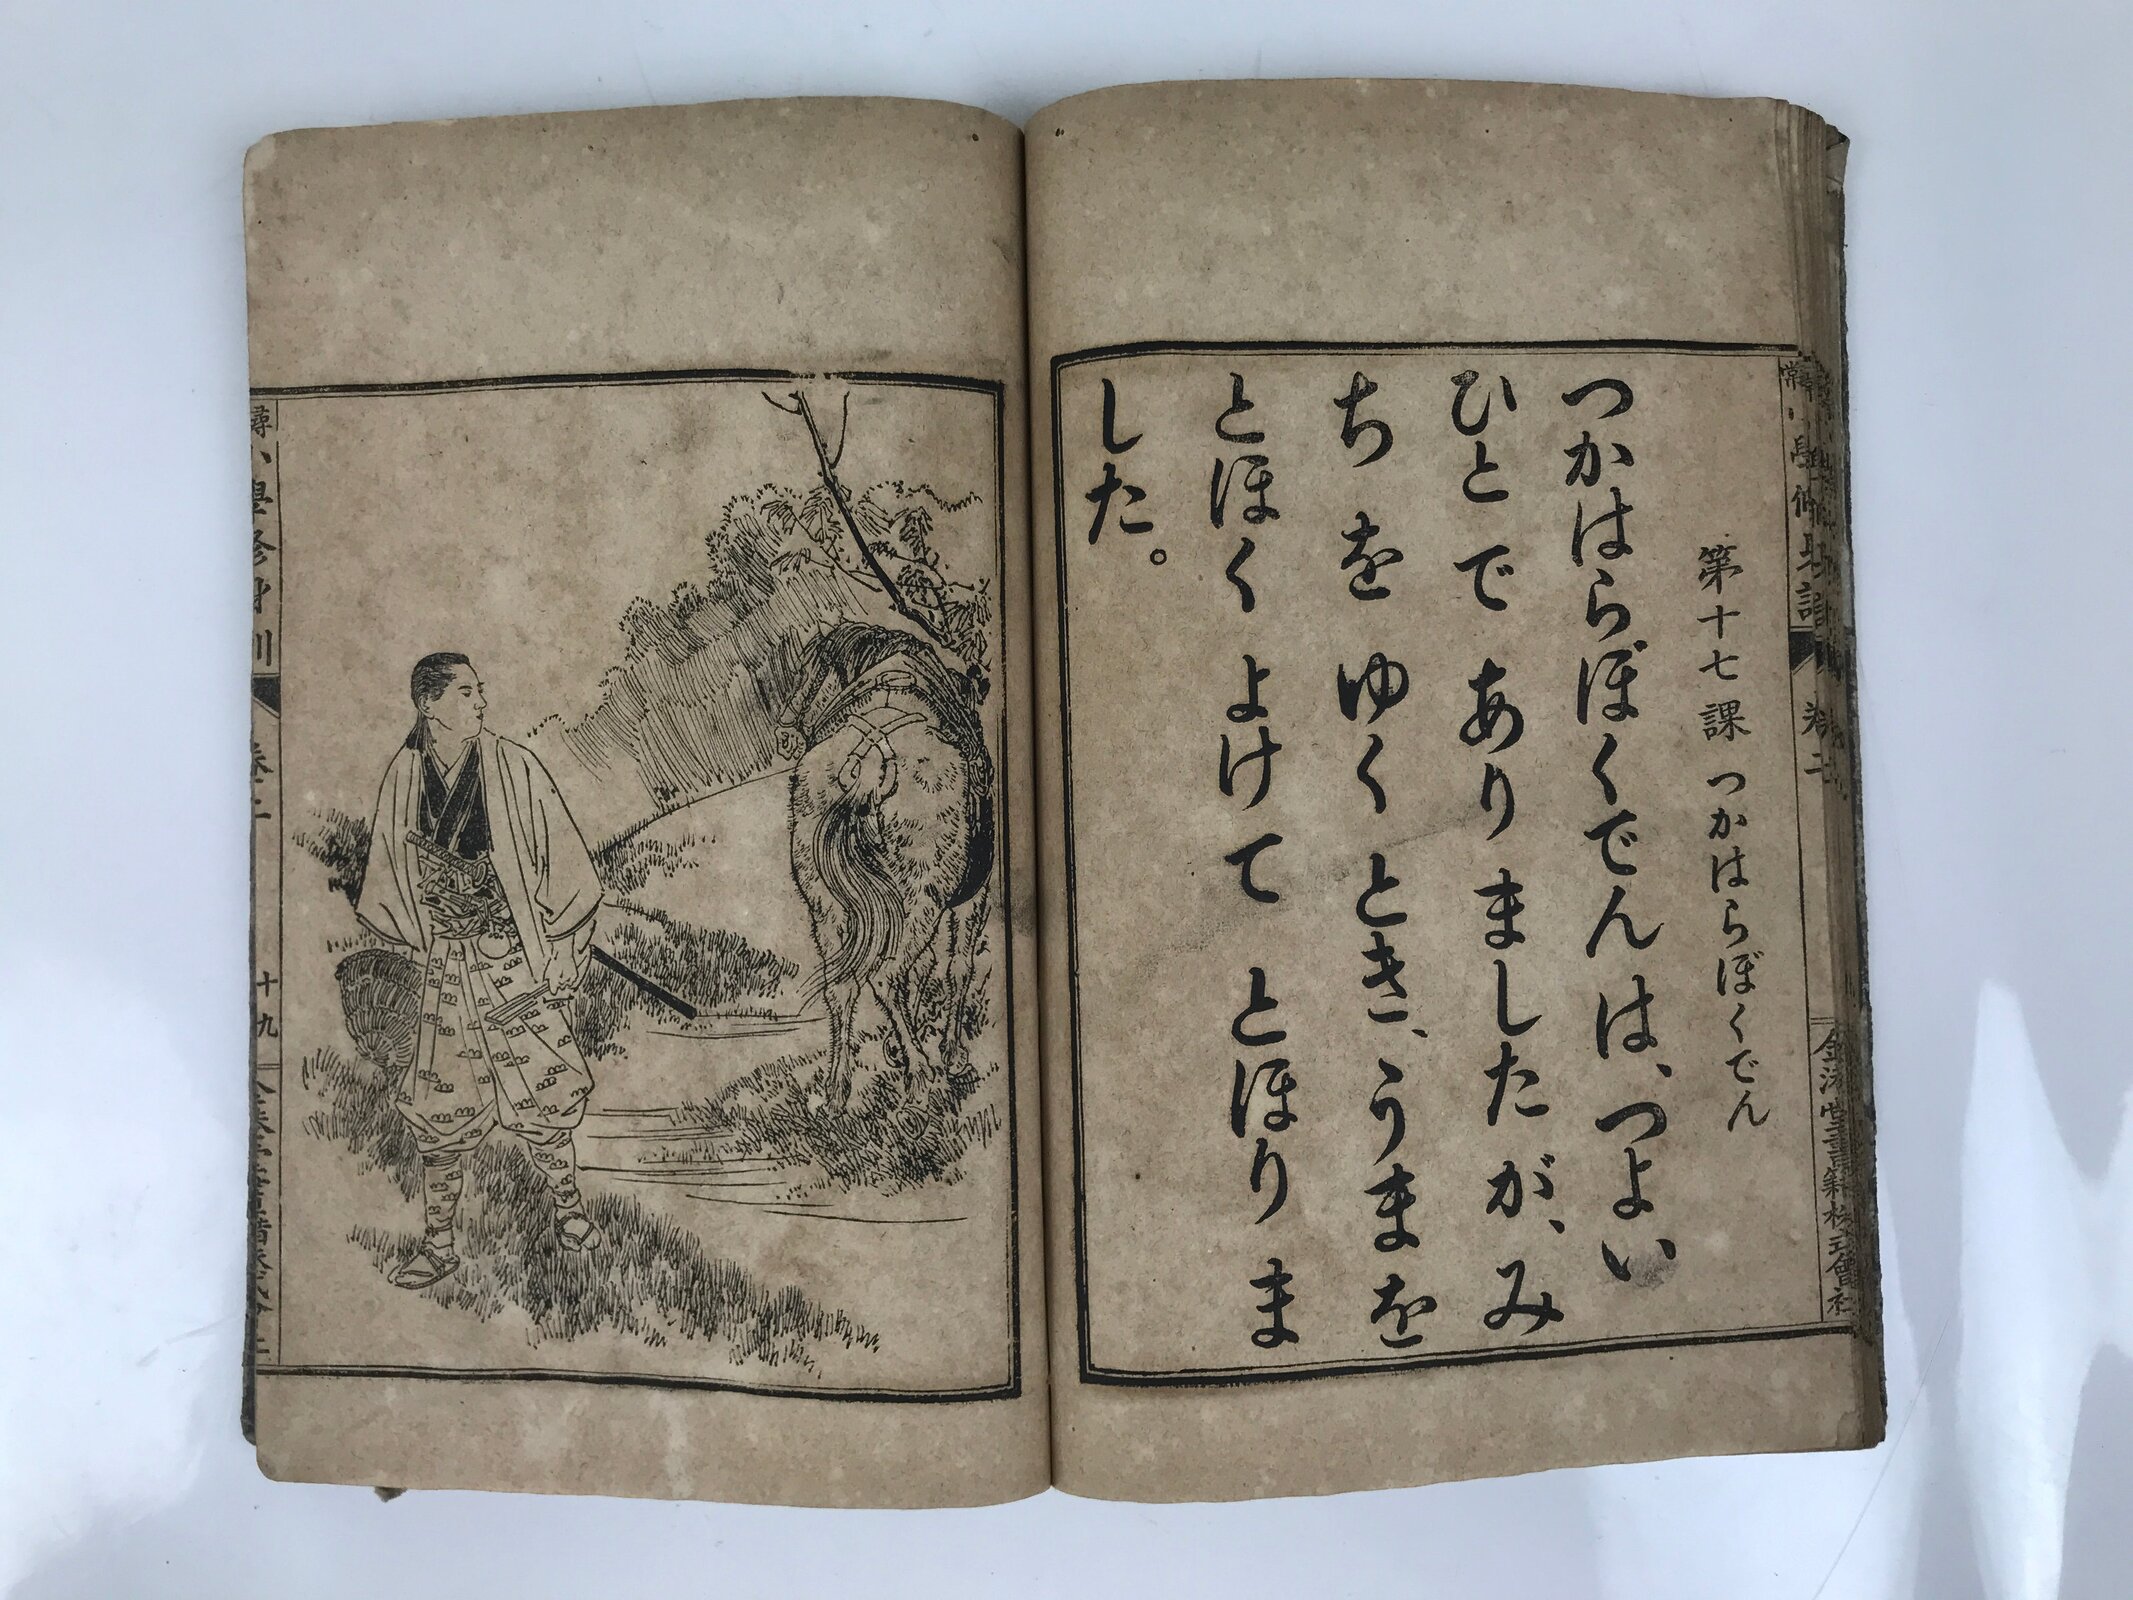 第十七課 つかはらぼくでん
つかはらぼくでんは、つよい
ひと で ありましたが、み
ち を ゆく とき、うま を
とほく よけて とほり ま
した。
小學修身訓
卷二
十九